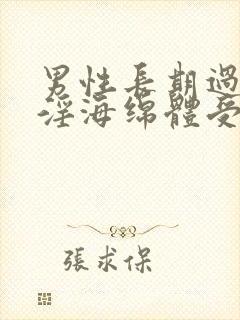 男性長期過
淫海綿體受
張求保